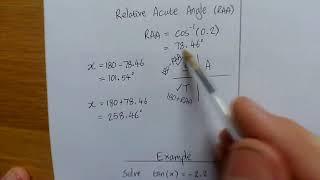 Relative Acute Angle (RAA)
RAA = cos⁻¹(0.2)
= 78.46°
x = 180 - 78.46
= 101.54°
A
✓T
180+RAA
x = 180 + 78.46
= 258.46°
Example
Solve tan(x) = -2.2